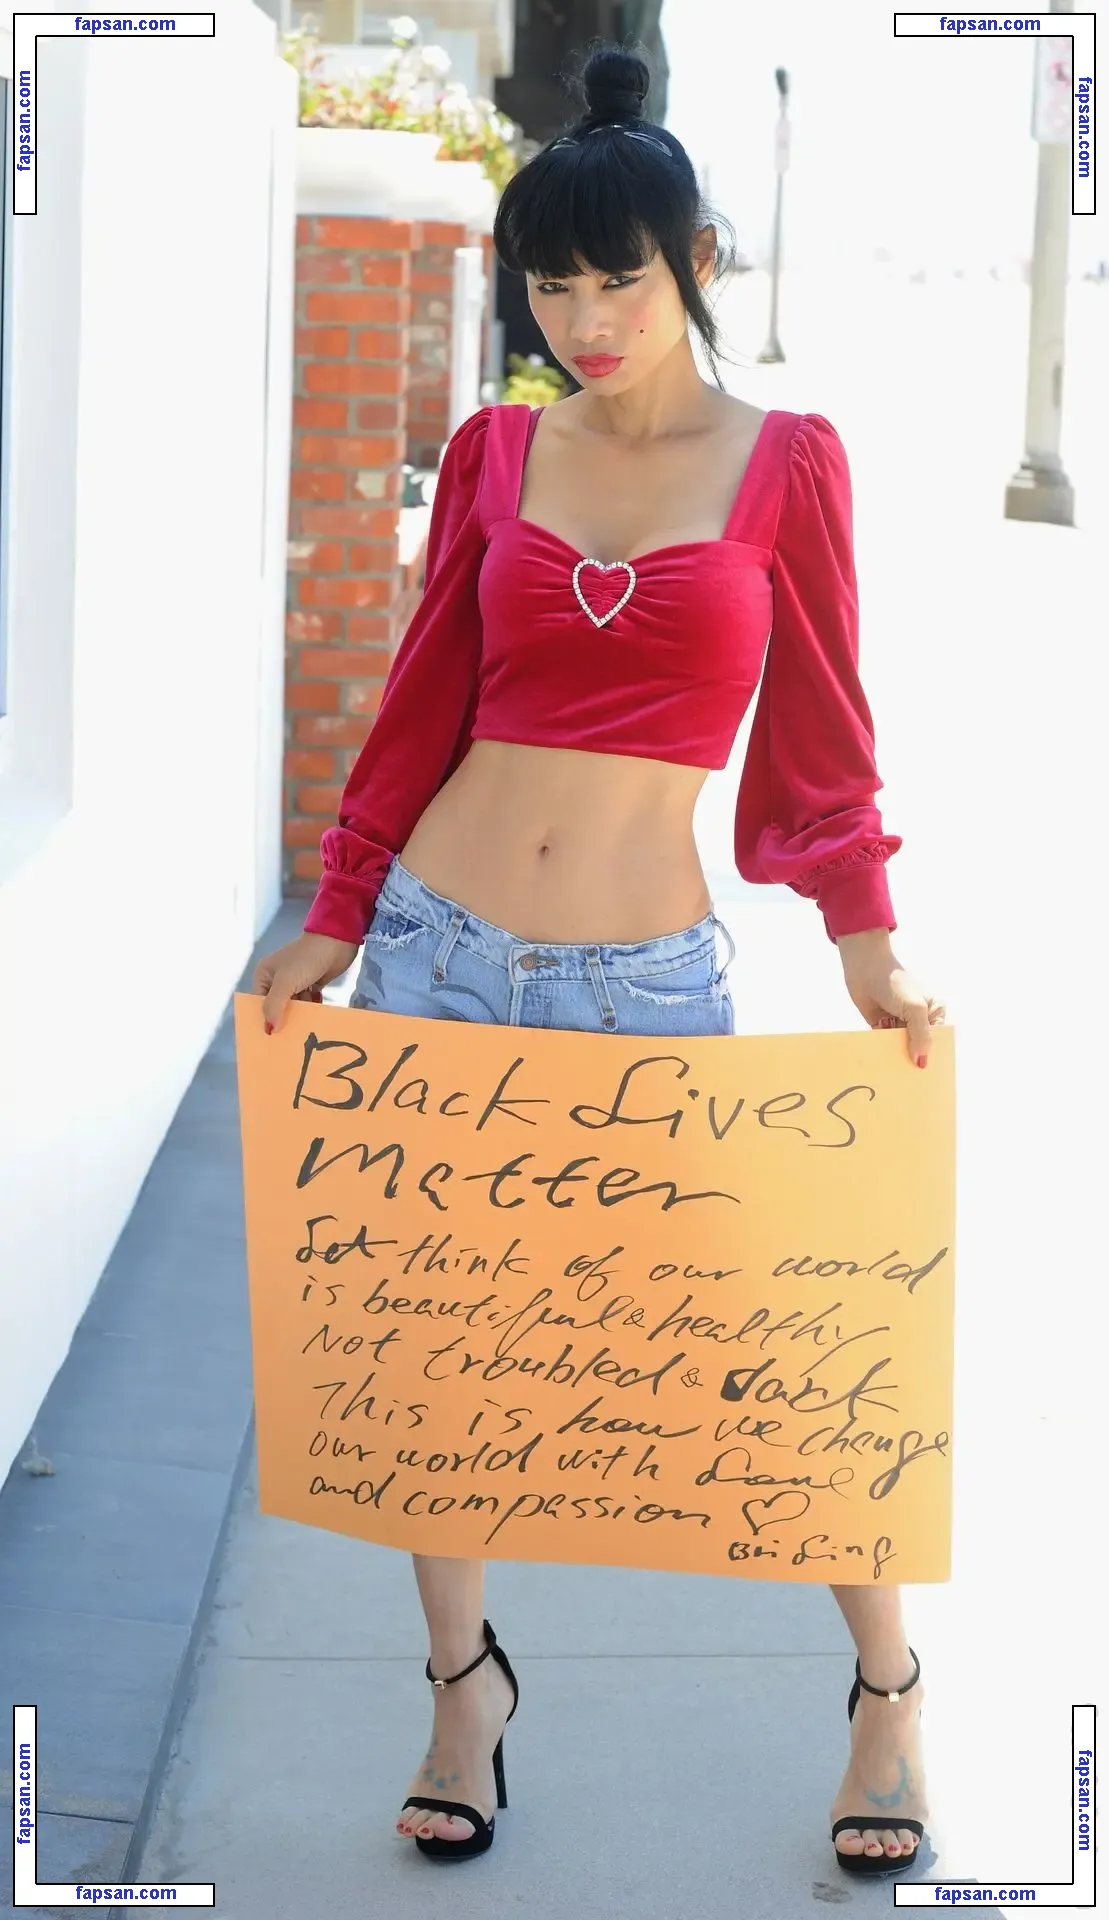 fapsan.com
fapsan.com
fapsan.com
fapsan.com
Black Lives
Matter
Let think of our world
is beautiful & healthy
Not troubled & dark
This is how we change
our world with Love
and compassion ♡
Bai Ling
fapsan.com
fapsan.com
fapsan.com
fapsan.com